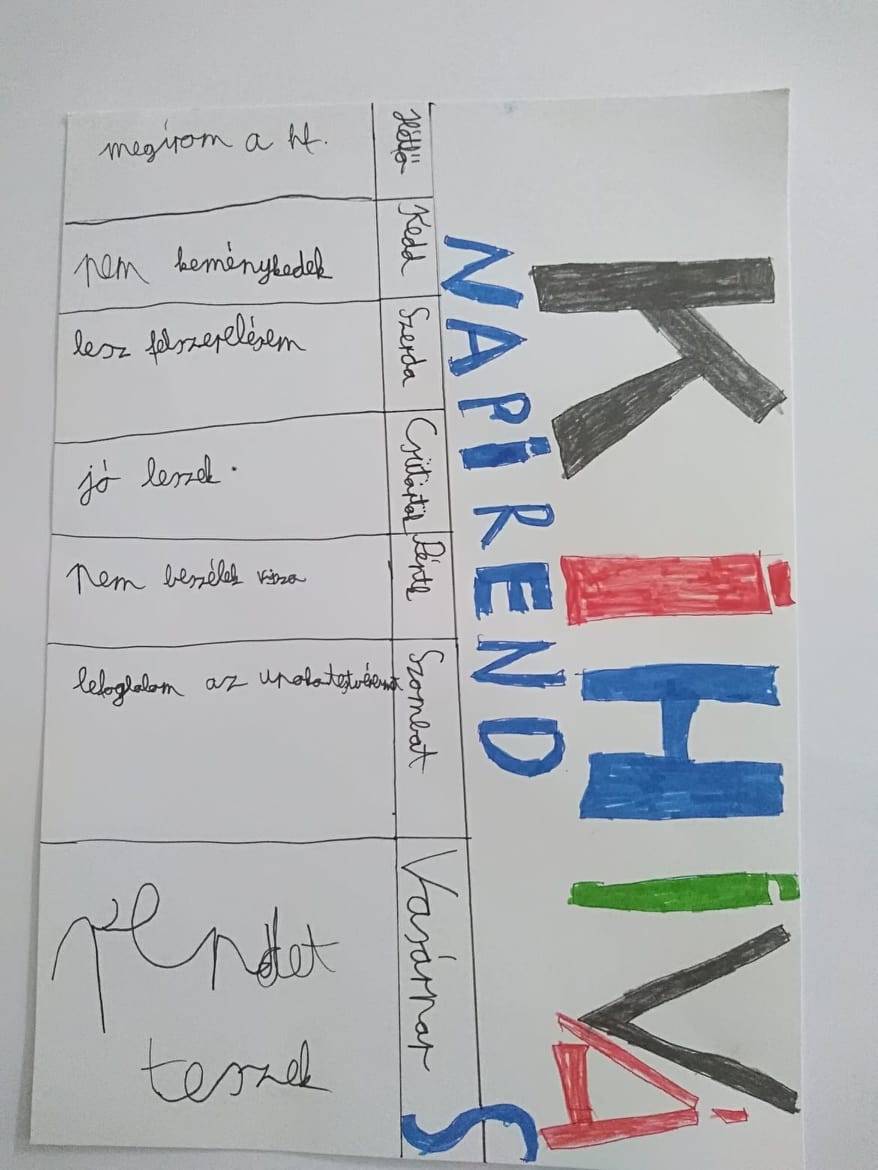 KiHiVÁS
NAPIREND
Hétfő
megírom a hf.
Kedd
nem keménykedek
Szerda
lesz felszerelésem
Csütörtök
jó leszek.
Pénte
nem beszélek visza
Szombat
lefoglalom az unokatestvéremet
Vasárnap
rendet
teszek